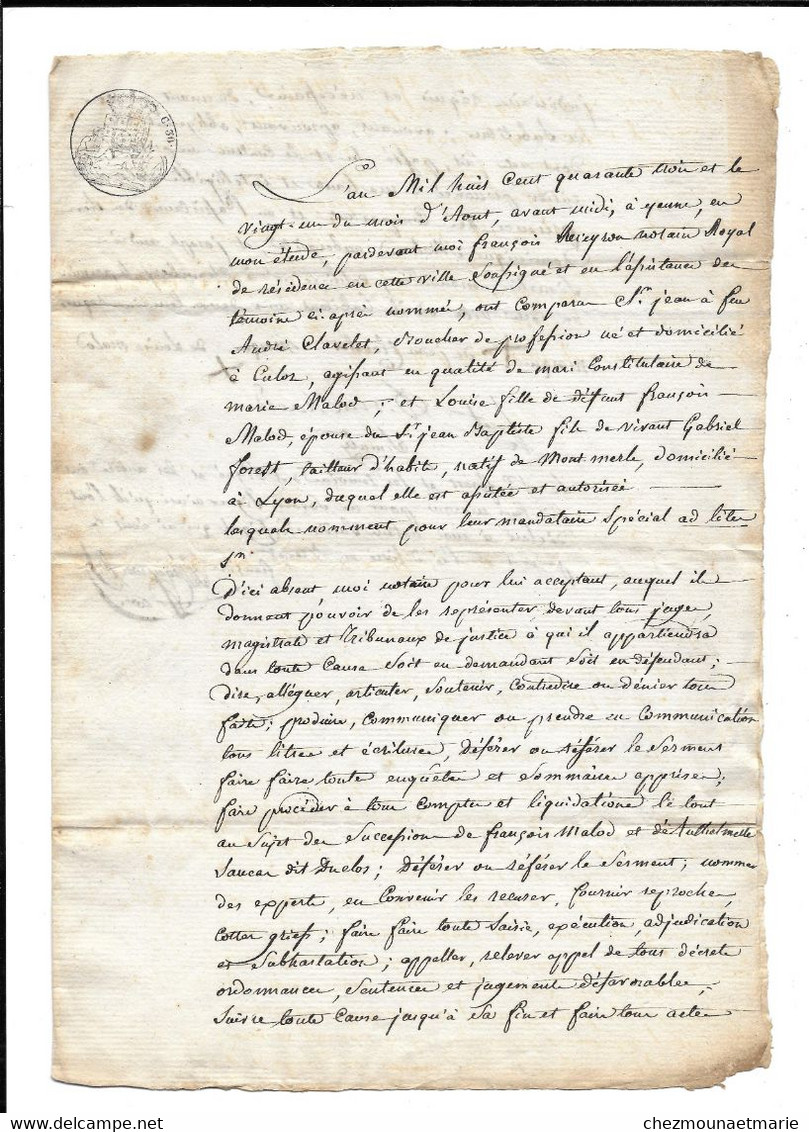 C. 30.
L'an Mil huit Cent quarante trois et le
vingt-un du mois d'Aout, avant midi, à yenne, en
mon étude, pardevant moi françois notaire Royal
de résidence en cette ville Soussigné et en l'assistance des
témoins ci-après nommés, ont comparu Sr. jean à feu
André Clavelet, Boucher de profession né et domicilié
à Culoz, agissant en qualité de mari Constitutaire de
marie Malod; et Louise fille de défunt françois
Malod, épouse du Sr. jean Baptiste fils de vivant Gabriel
forest, tailleur d'habits, natif de Montmerle, domicilié
à Lyon, duquel elle est assistée et autorisée
lesquels nomment pour leur mandataire Spécial ad lites
Sr.
D'ici absent moi notaire pour lui acceptant, auquel ils
donnent pouvoir de les représenter devant tous juges,
magistrats et Tribunaux de justice à qui il appartiendra
dans toute Cause Soit en demandant Soit en défendant;
dire, alléguer, articuler, Soutenir, Contredire ou dénier tous
faits; produire, Communiquer ou prendre en Communication
tous titres et écritures, Déférer ou référer le Serment
faire faire toute enquêtes et Sommaires apprises;
faire procéder à tous Comptes et liquidations le tout
au Sujet des Succession de françois Malod et d'Anthelmette
Saucaz dit Duclos; Déférer ou référer le Serment; nommer
des experts, en Convenir les recuser, fournir reproches,
Cotter griefs; faire faire toute Saisie, exécution, adjudication
et Subhastation; appeller, relever appel de tous décrets
ordonnances, Sentences et jugements défavorables;
Suivre toute Cause jusqu'à Sa fin et faire tous actes
chezmounaetmarie